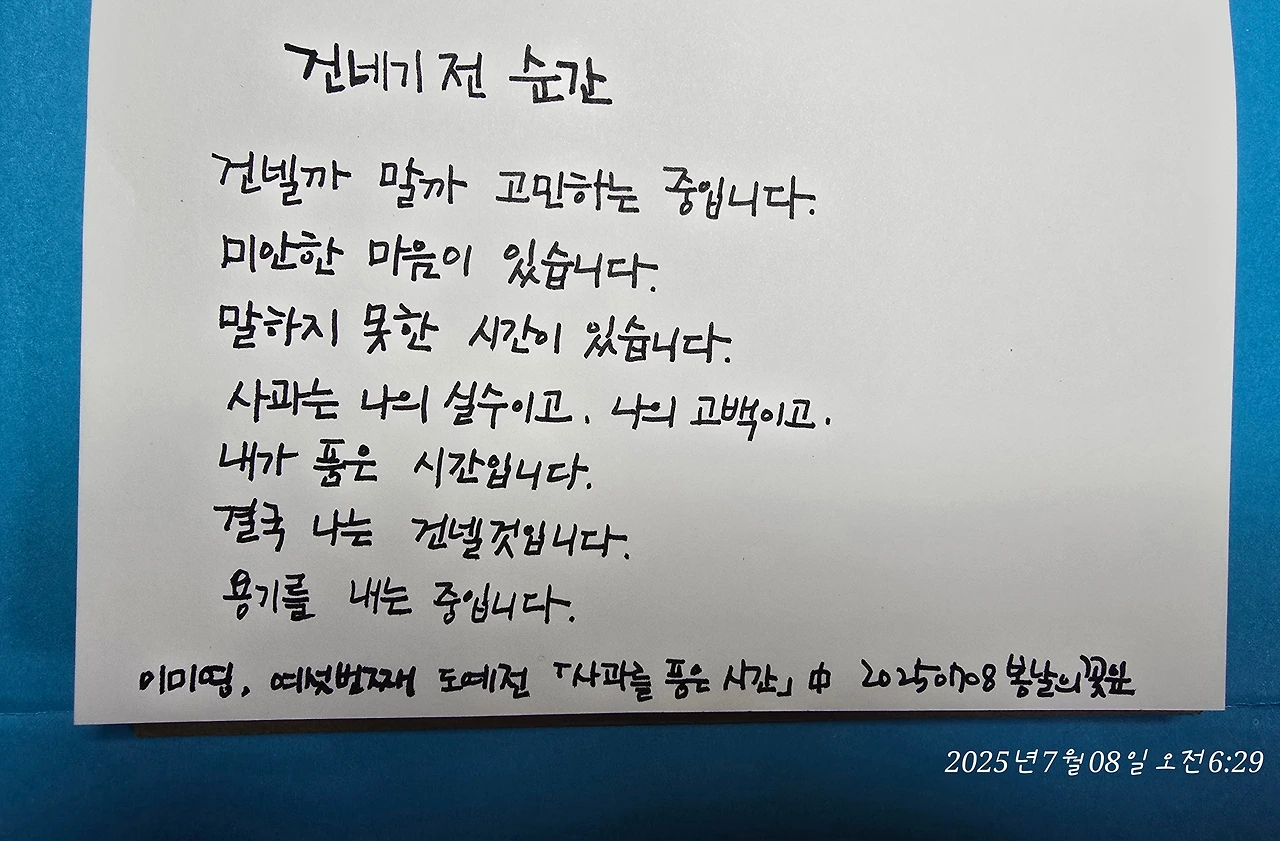 건네기 전 순간
건넬까 말까 고민하는 중입니다.
미안한 마음이 있습니다.
말하지 못한 시간이 있습니다.
사과는 나의 실수이고. 나의 고백이고.
내가 품은 시간입니다.
결국 나는 건넬것입니다.
용기를 내는 중입니다.
이미영, 여섯번째 도예전 「사과를 품은 시간」 中 20250708 봄날의꽃잎
2025년 7월 08일 오전 6:29